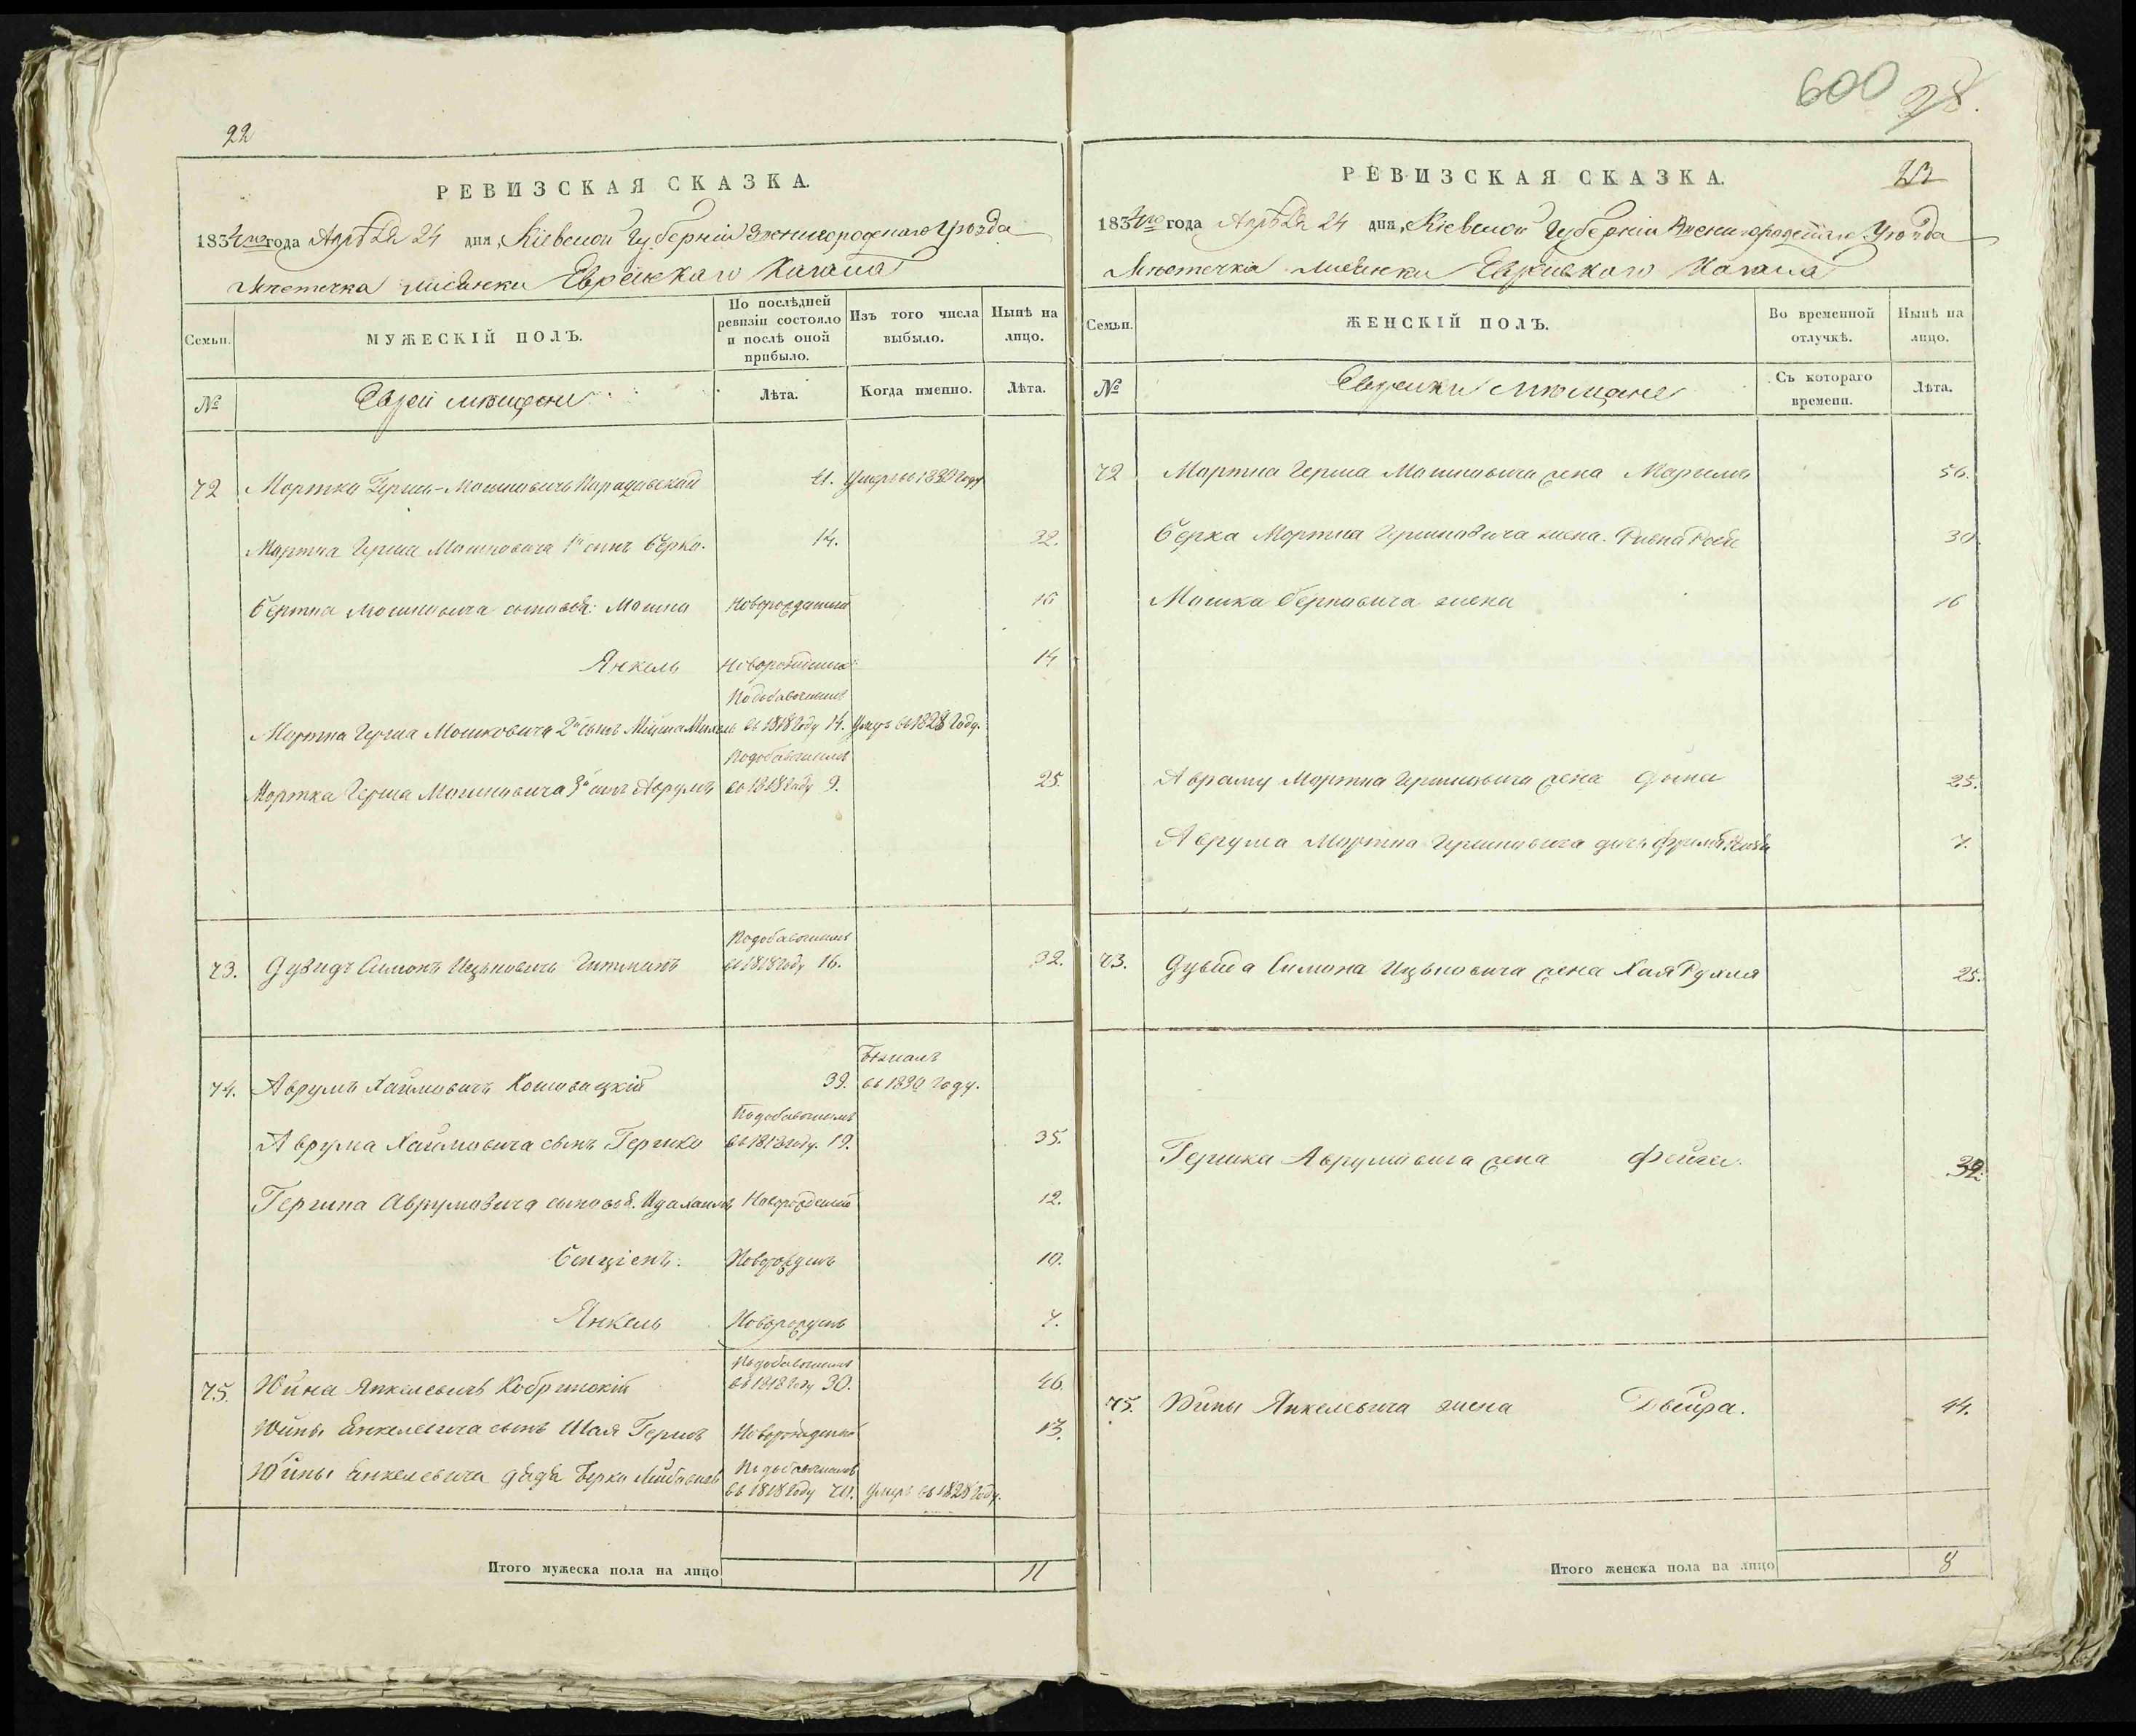 22
РЕВИЗСКАЯ СКАЗКА.
1834го года Апрѣля 24 дня, Кіевской Губерніи Звенигородскаго Уѣзда
Мѣстечка Лисянки Еврейскаго Кагала
Семьи.
МУЖЕСКІЙ ПОЛЪ.
По послѣдней ревизіи состояло и послѣ оной прибыло.
Изъ того числа выбыло.
Нынѣ на лицо.
№
Евреи мѣщане
Лѣта.
Когда именно.
Лѣта.
72 Мортко Герш-Мошковичъ 41. Умеръ въ 1830 году
Мортка Герша Мошковича 1й сынъ Берко. 14. 32.
Берка сыновья: Мошко Новорожденный 16
Янкель Новорожденный 14
Мортка Герша Мошковича 2й сынъ По добавочнымъ въ 1818 году 14. Умеръ въ 1828 году.
Мортка Герша Мошковича 3й сынъ Аврумъ По добавочнымъ въ 1818 году 9. 25.
73. Дувидъ Симонъ Ицьковичъ По добавочнымъ въ 1818 году 16. 32.
74. Аврумъ Хаймовичъ 39. въ 1830 году.
Аврума Хаймовича сынъ Гершко По добавочнымъ въ 1818 году. 19. 35.
Гершка Аврумовича сыновья. Новорожденный 12.
Бенціенъ. Новорожден 10.
Янкель Новорожден 7.
75. Юйна Янкелевичъ Кобринскій По добавочнымъ въ 1818 году 30. 46.
Юйны Янкелевича сынъ Шая Гершъ Новорожденный 13.
Юйны Янкелевича дядя Берко По добавочнымъ въ 1818 году 70. Умеръ въ 1828 году.
Итого мужеска пола на лицо 11
600 98.
23
РЕВИЗСКАЯ СКАЗКА.
1834го года Апрѣля 24 дня, Кіевской Губерніи Звенигородскаго Уѣзда
Мѣстечка Лисянки Еврейскаго Кагала
Семьи.
ЖЕНСКІЙ ПОЛЪ.
Во временной отлучкѣ.
Нынѣ на лицо.
№
Еврейки мѣщане
Съ котораго времени.
Лѣта.
72 Мортка Герша Мошковича жена Марьямъ 56.
Берка Мортка Гершковича жена. 30
Мошка Берковича жена 16
Аврума Мортка Гершковича жена 25.
Аврума Мортка Гершковича дочь 7.
73. Дувида Симона Ицьковича жена Хая Рухля 25.
Гершка Аврумовича жена Фейга. 32.
75. Юйны Янкелевича жена Двейра. 44.
Итого женска пола на лицо 8